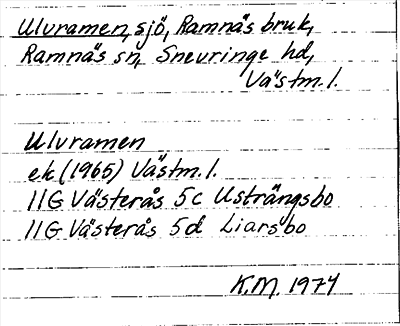 Ulvramen, sjö, Ramnäs bruk,
Ramnäs sn, Snevringe hd,
Västm.l.
Ulvramen
ek (1965) Västm.l.
11G Västerås 5c Usträngsbo
11G Västerås 5d Liarsbo
K.M. 1974